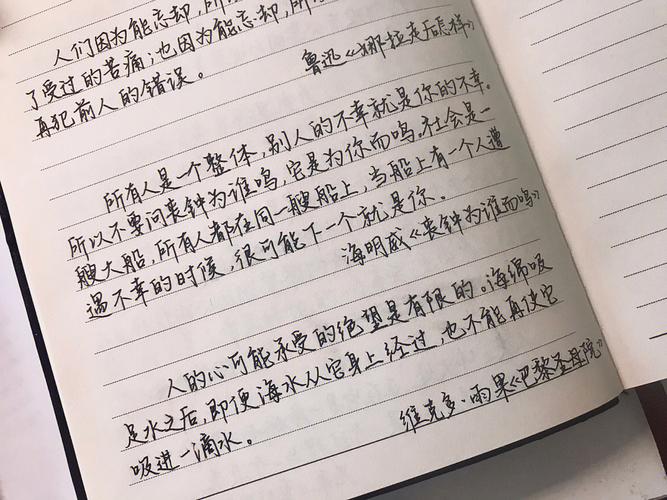 人们因为能忘却,所
了受过的苦痛;也因为能忘却,所
再犯前人的错误。
鲁迅《娜拉走后怎样》
所有人是一个整体,别人的不幸就是你的不幸。
所以不要问丧钟为谁鸣,它是为你而鸣。社会是一
艘大船,所有人都在同一艘船上,当船上有一个人遭
遇不幸的时候,很可能下一个就是你。
海明威《丧钟为谁而鸣》
人的心可能承受的绝望是有限的。海绵吸
足水之后,即便海水从它身上经过,也不能再使它
吸进一滴水。
维克多·雨果《巴黎圣母院》